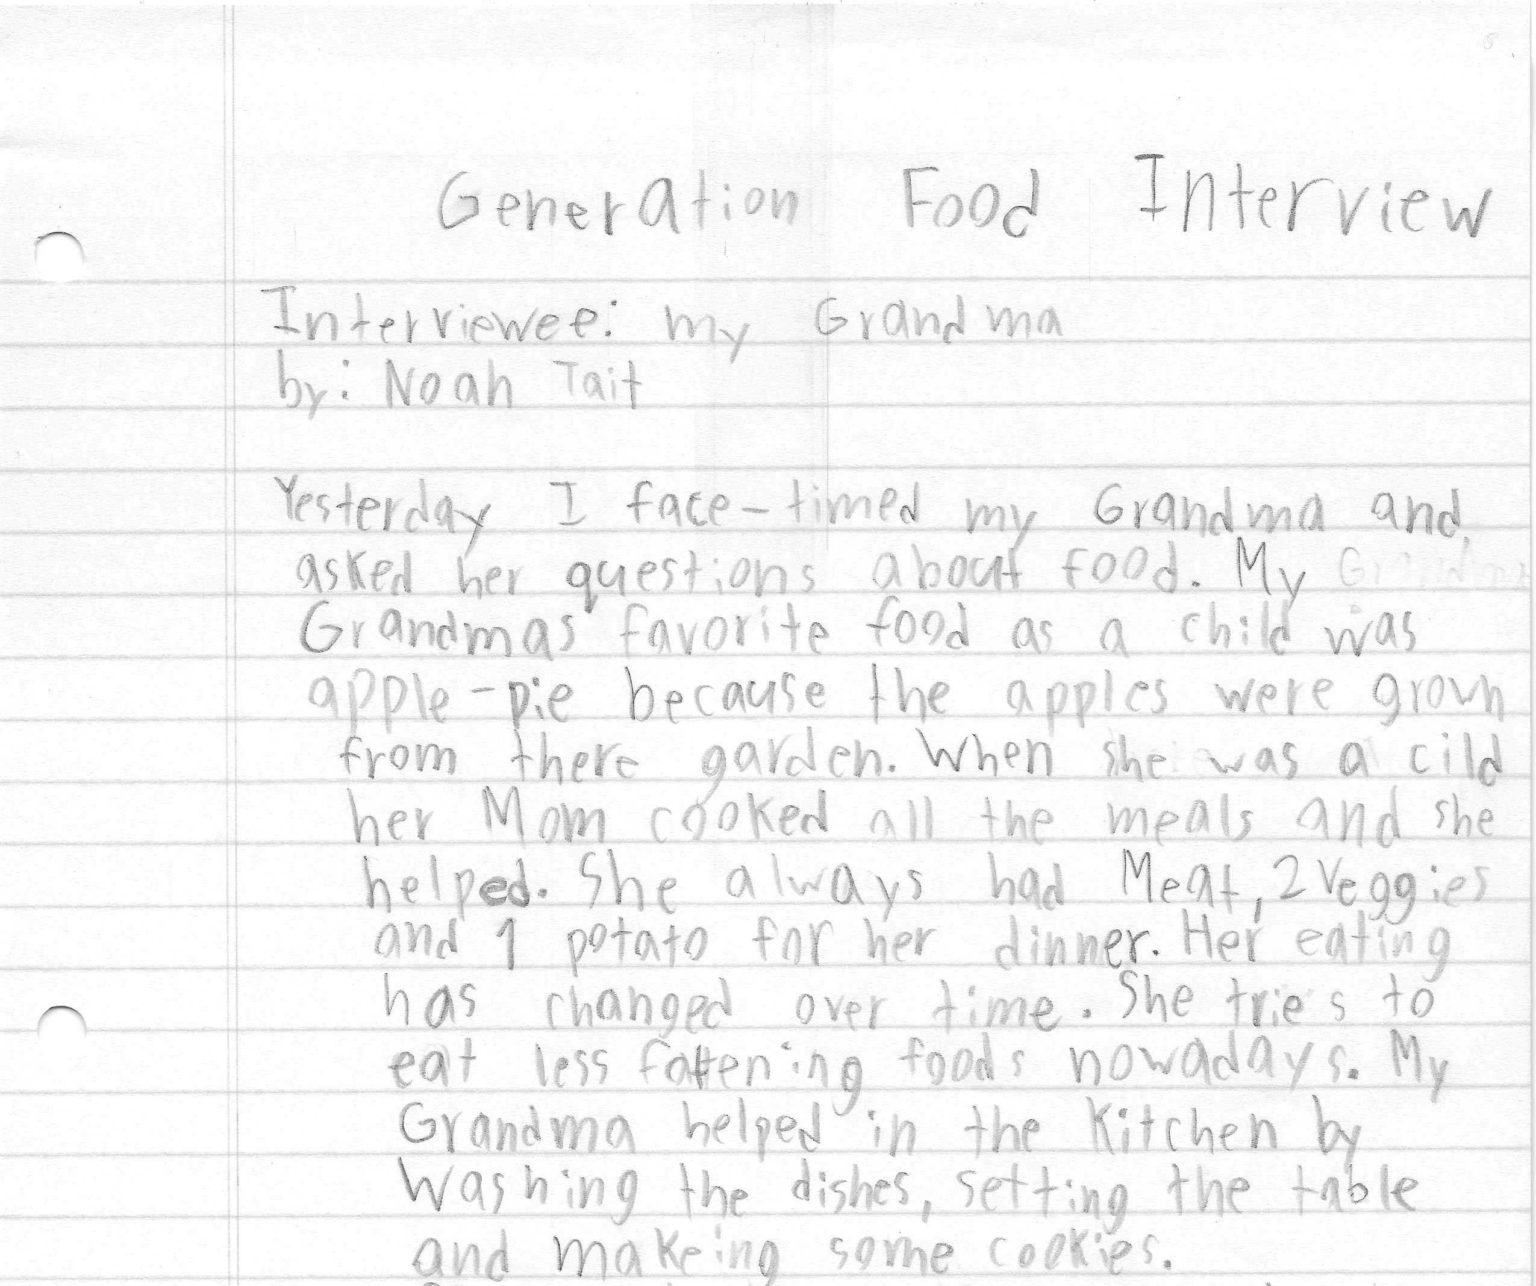 Generation Food Interview
Interviewee: my Grandma
by: Noah Tait
Yesterday I face-timed my Grandma and
asked her questions about food. My
Grandmas favorite food as a child was
apple-pie because the apples were grown
from there garden. When she was a cild
her Mom cooked all the meals and she
helped. She always had Meat, 2 Veggies
and 1 potato for her dinner. Her eating
has changed over time. She tries to
eat less fattening foods nowadays. My
Grandma helped in the Kitchen by
Washing the dishes, setting the table
and makeing some cookies.